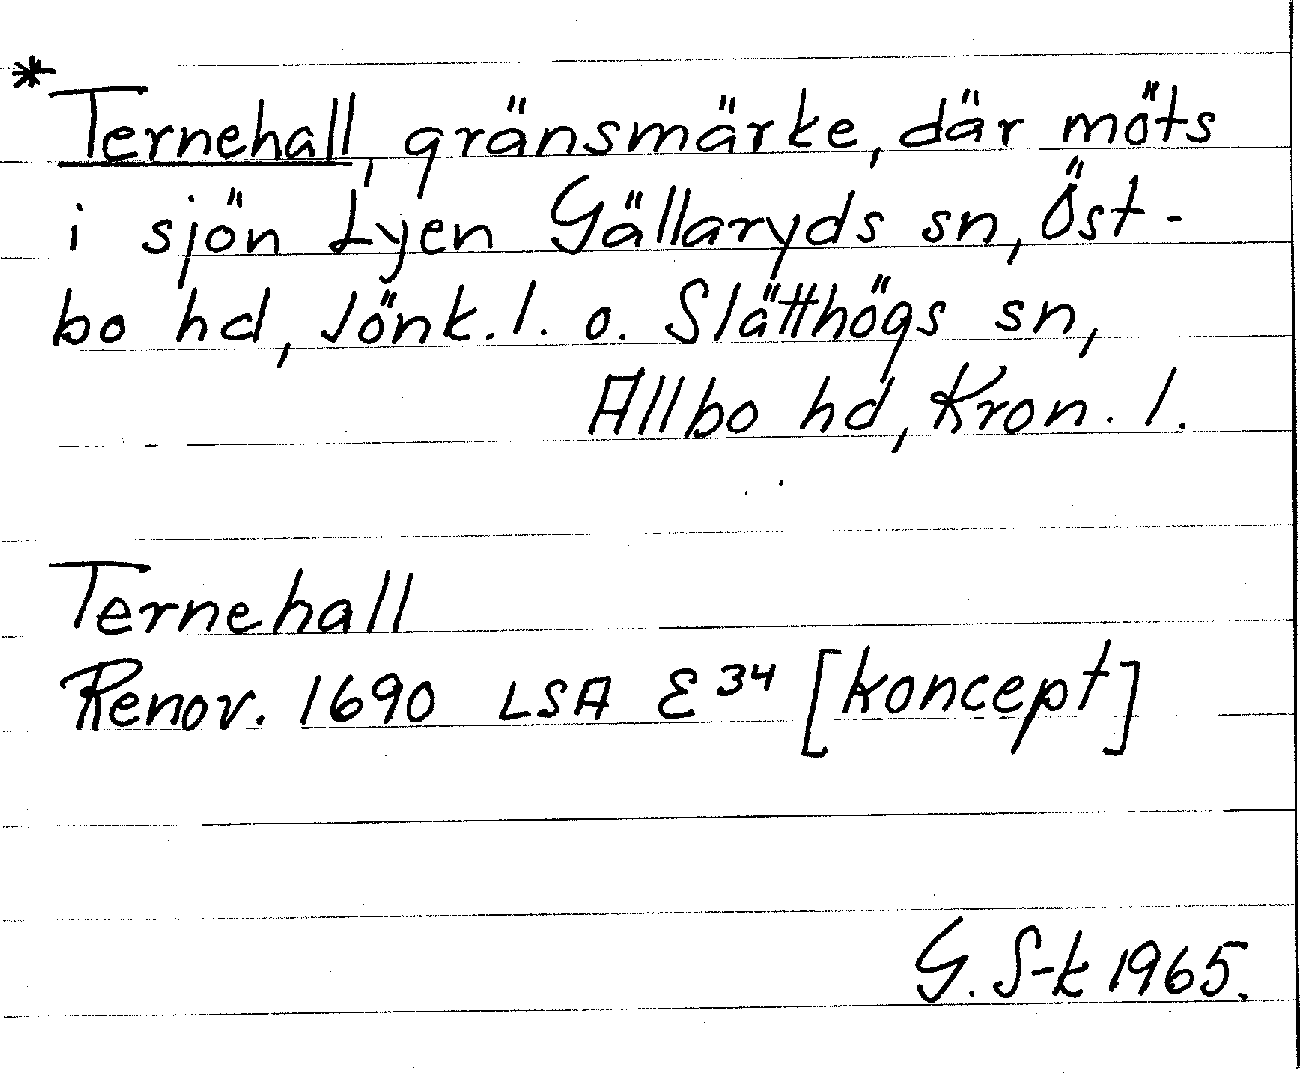 * Ternehall, gränsmärke, där möts
i sjön Lyen Gällaryds sn, Öst-
bo hd, Jönk. l. o. Slätthögs sn,
Allbo hd, Kron. l.
Ternehall
Renov. 1690 LSA E 34 [koncept]
G. S-k 1965.